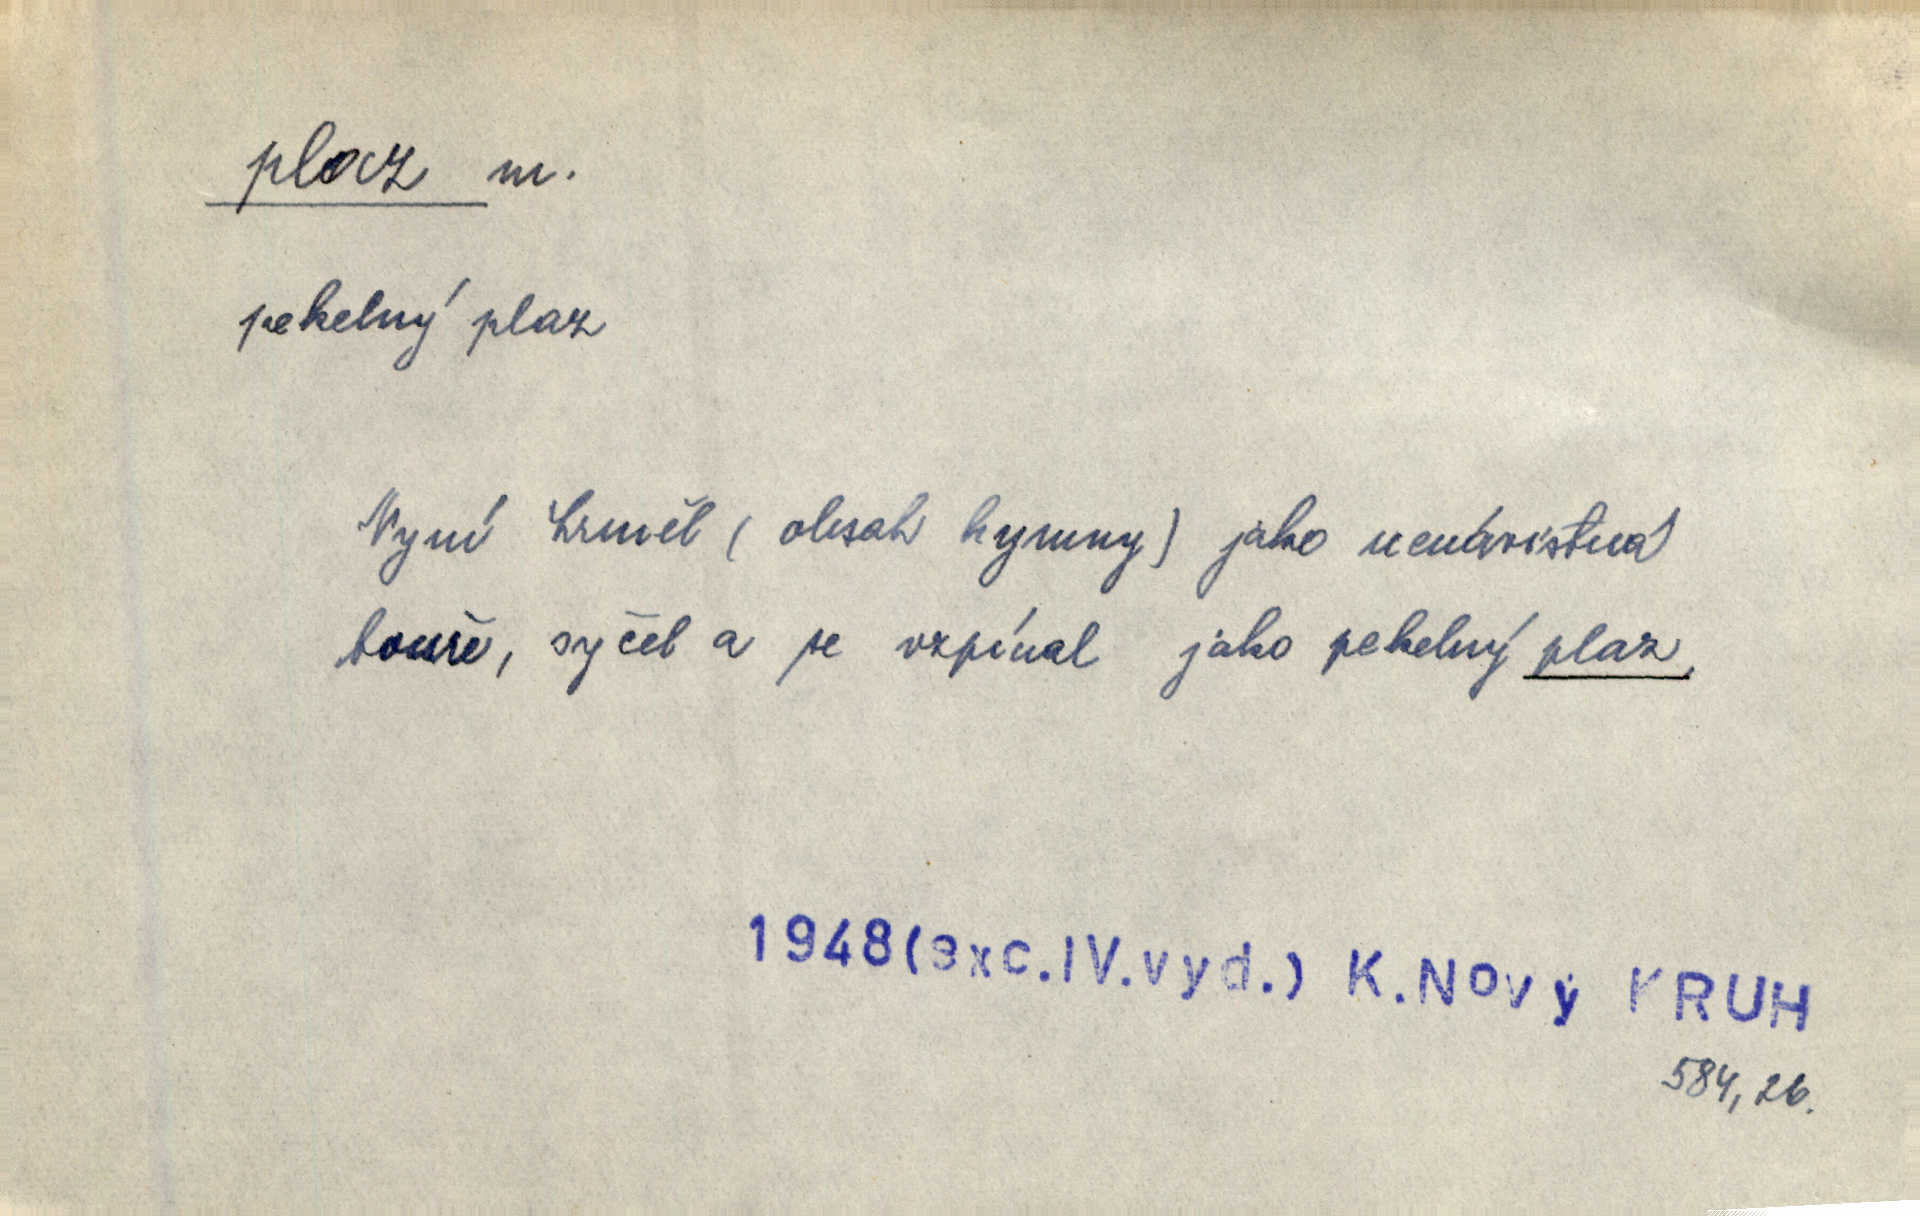 plaz m.
pekelný plaz
Nyní hrměl (obsah hymny) jako nenávistná
bouře, syčel a se vzpínal jako pekelný plaz,
1948(exc.IV.vyd.) K.Nový KRUH
584, 26.